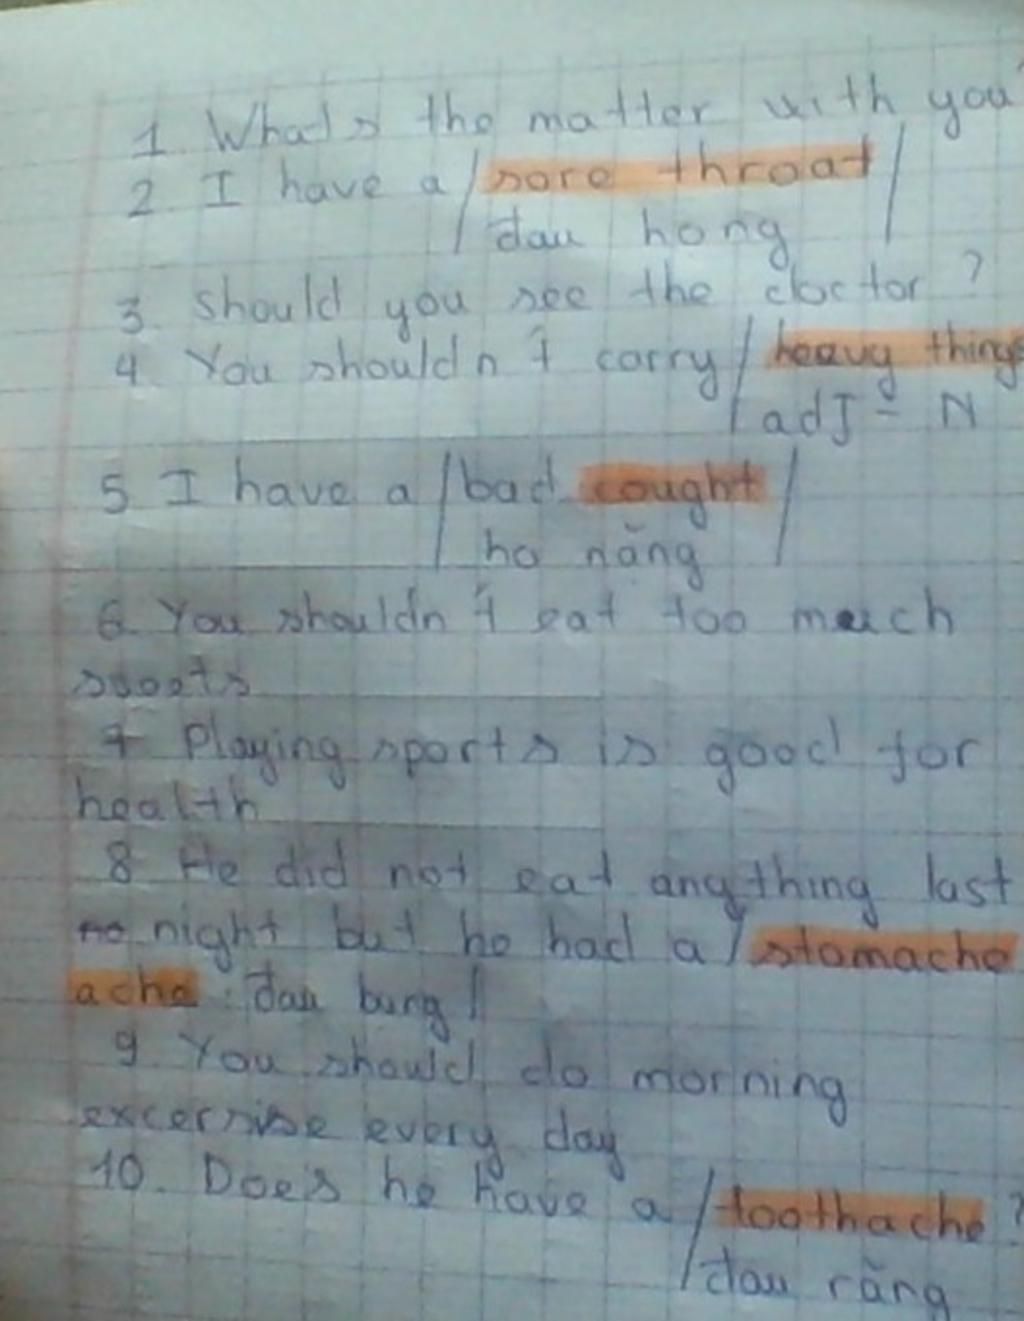 1. What's the matter with you?
2. I have a / sore throat /
/ đau hong
3. should you see the doctor ?
4. You shouldn't carry / heavy things
/ adJ - N
5. I have a / bad cought /
ho năng
6. You shouldn't eat too much
sweets
7 Playing sports is good for
health
8 He did not eat anything last
night but he had a / stomache
ache : đau bung /
9. You should do morning
excersise every day
10. Does he have a / toothache ?
/ đau răng